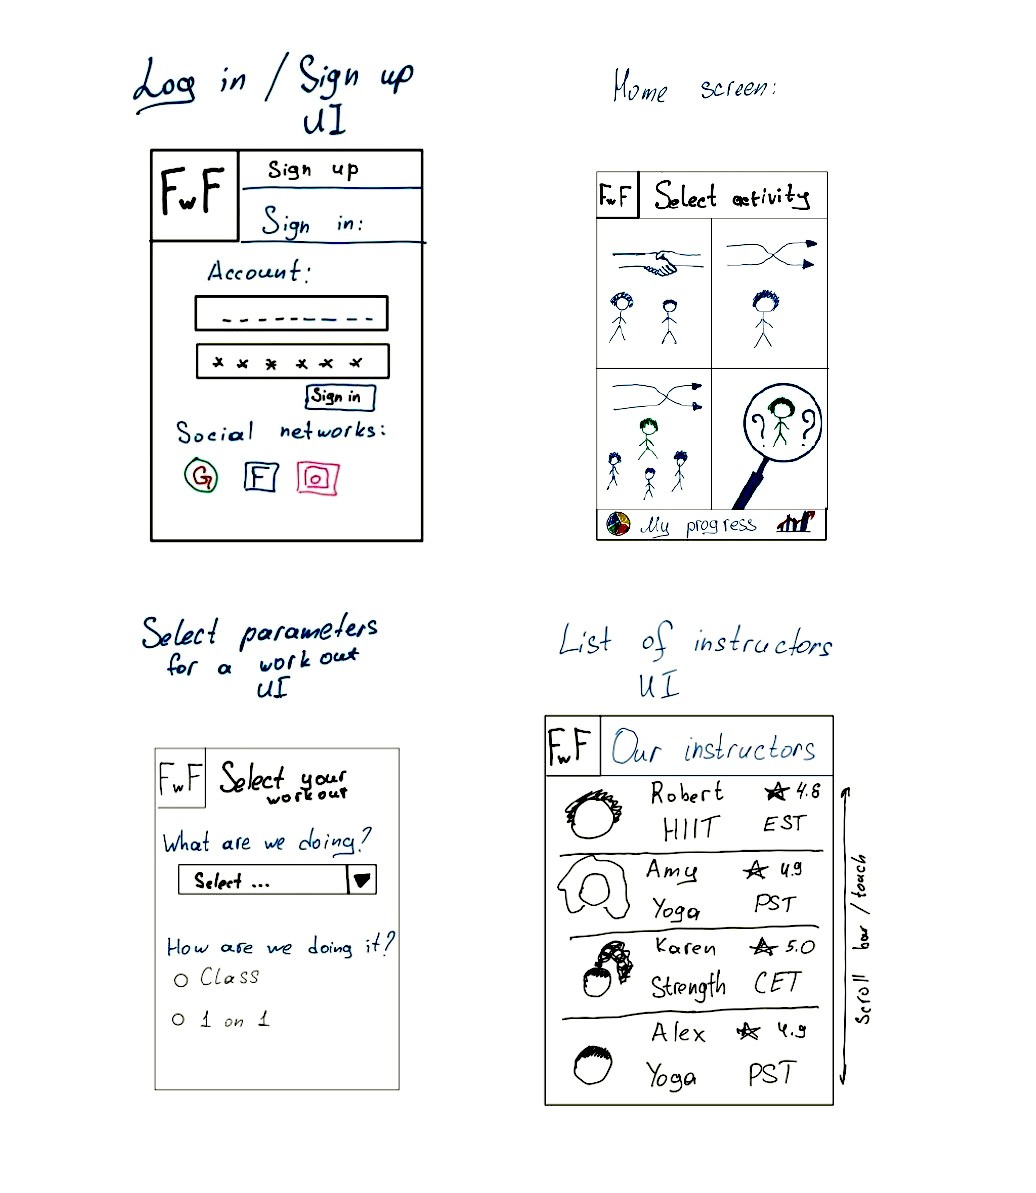 Log in / Sign up
UI
FwF
Sign up
Sign in:
Account:
_ _ _ _ _ _ _ _ _
* * * * * *
Sign in
Social networks:
G F
Home screen:
FwF Select activity
? ?
My progress
Select parameters
for a workout
UI
FwF Select your
workout
What are we doing?
Select ...
How are we doing it?
Class
1 on 1
List of instructors
UI
FwF Our instructors
Robert ★ 4.8
HIIT EST
Amy ★ 4.9
Yoga PST
Karen ★ 5.0
Strength CET
Alex ★ 4.9
Yoga PST
Scroll bar / touch